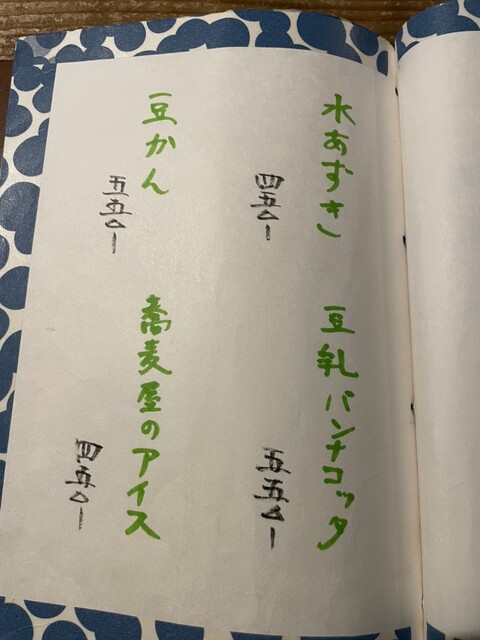 水あずき
四五〇-
豆乳パンナコッタ
五五〇-
豆かん
五五〇-
蕎麦屋のアイス
四五〇-